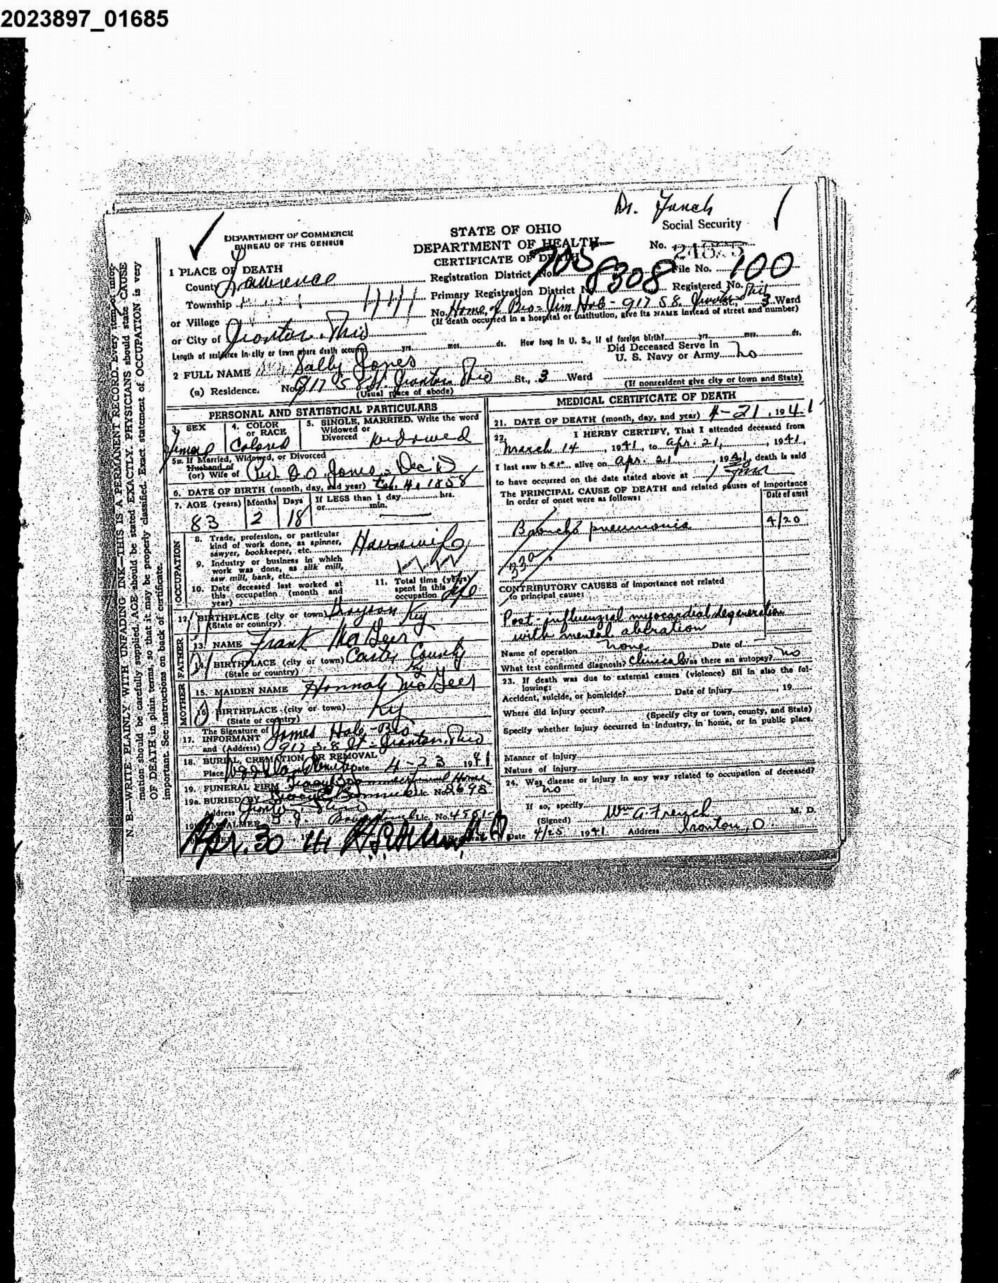 2023897_01685
Dr. Funch
DEPARTMENT OF COMMERCE
BUREAU OF THE CENSUS
STATE OF OHIO
DEPARTMENT OF HEALTH
CERTIFICATE OF DEATH
Social Security
No.
1 PLACE OF DEATH
County Lawrence
Township
or Village
or City of Ironton, Ohio
Registration District No. 705
File No.
Primary Registration District No. 8308
Registered No. 100
No. Home of Bro = Jim Hale - 917 S 8. Ironton, Ohio 3 Ward
(If death occurred in a hospital or institution, give its NAME instead of street and number)
Length of residence in city or town where death occurred yrs. mos. ds. How long in U. S., if of foreign birth? yrs. mos. ds.
2 FULL NAME Sally Jones
Did Deceased Serve in
U. S. Navy or Army No
(a) Residence. No 917 S 8 St. Ironton Ohio St., 3 Ward
(Usual place of abode)
(If nonresident give city or town and State)
PERSONAL AND STATISTICAL PARTICULARS
3. SEX
4. COLOR or RACE Colored
5. SINGLE, MARRIED, Write the word
Widowed or
Divorced widowed
5a. If Married, Widowed, or Divorced
Husband of
(or) Wife of Jones - Dec'd
6. DATE OF BIRTH (month, day, and year) Feb. 4, 1858
7. AGE (years) Months Days If LESS than 1 day hrs.
or min.
83 2 18
OCCUPATION
8. Trade, profession, or particular
kind of work done, as spinner,
sawyer, bookkeeper, etc. Housewife
9. Industry or business in which
work was done, as silk mill,
saw mill, bank, etc.
10. Date deceased last worked at
this occupation (month and
year)
11. Total time (years)
spent in this
occupation Life
12. BIRTHPLACE (city or town) Grayson Ky
(State or country)
FATHER
13. NAME Frank McGeer
14. BIRTHPLACE (city or town) Carter County
(State or country) Ky
MOTHER
15. MAIDEN NAME Hannah McGeer
16. BIRTHPLACE (city or town) Ky
(State or country)
17. The Signature of
INFORMANT James Hale - Bro
and (Address) 917 S. 8 St - Ironton, Ohio
18. BURIAL, CREMATION OR REMOVAL
Place Woodland Cemetery Date 4-23 1941
19. FUNERAL FIRM
19a. BURIED BY Lic. No 2698
Address Ironton, Ohio
EMBALMER Lic. No. 4581
Apr. 30 41
MEDICAL CERTIFICATE OF DEATH
21. DATE OF DEATH (month, day, and year) 4-21, 1941
22. I HERBY CERTIFY, That I attended deceased from
March 14, 1941, to Apr. 21, 1941,
I last saw her alive on Apr. 21 1941, death is said
to have occurred on the date stated above at
The PRINCIPAL CAUSE OF DEATH and related causes of importance
in order of onset were as follows:
Date of onset
Broncho pneumonia 4/20
CONTRIBUTORY CAUSES of importance not related
to principal cause:
Post-influenzial myocardial degeneration
with mental abberation
Name of operation none Date of
What test confirmed diagnosis? Clinical Was there an autopsy? no
23. If death was due to external causes (violence) fill in also the following:
Accident, suicide, or homicide? Date of injury 19
Where did injury occur?
(Specify city or town, county, and State)
Specify whether injury occurred in industry, in home, or in public place.
Manner of injury
Nature of injury
24. Was disease or injury in any way related to occupation of deceased?
no
If so, specify
(Signed) Wm A French M. D.
Date 4/25 1941 Address Ironton, O.
N. B.—WRITE PLAINLY WITH UNFADING INK—THIS IS A PERMANENT RECORD. Every item of information should be carefully supplied. AGE should be stated EXACTLY. PHYSICIANS should state CAUSE OF DEATH in plain terms, so that it may be properly classified. Exact statement of OCCUPATION is very important. See instructions on back of certificate.